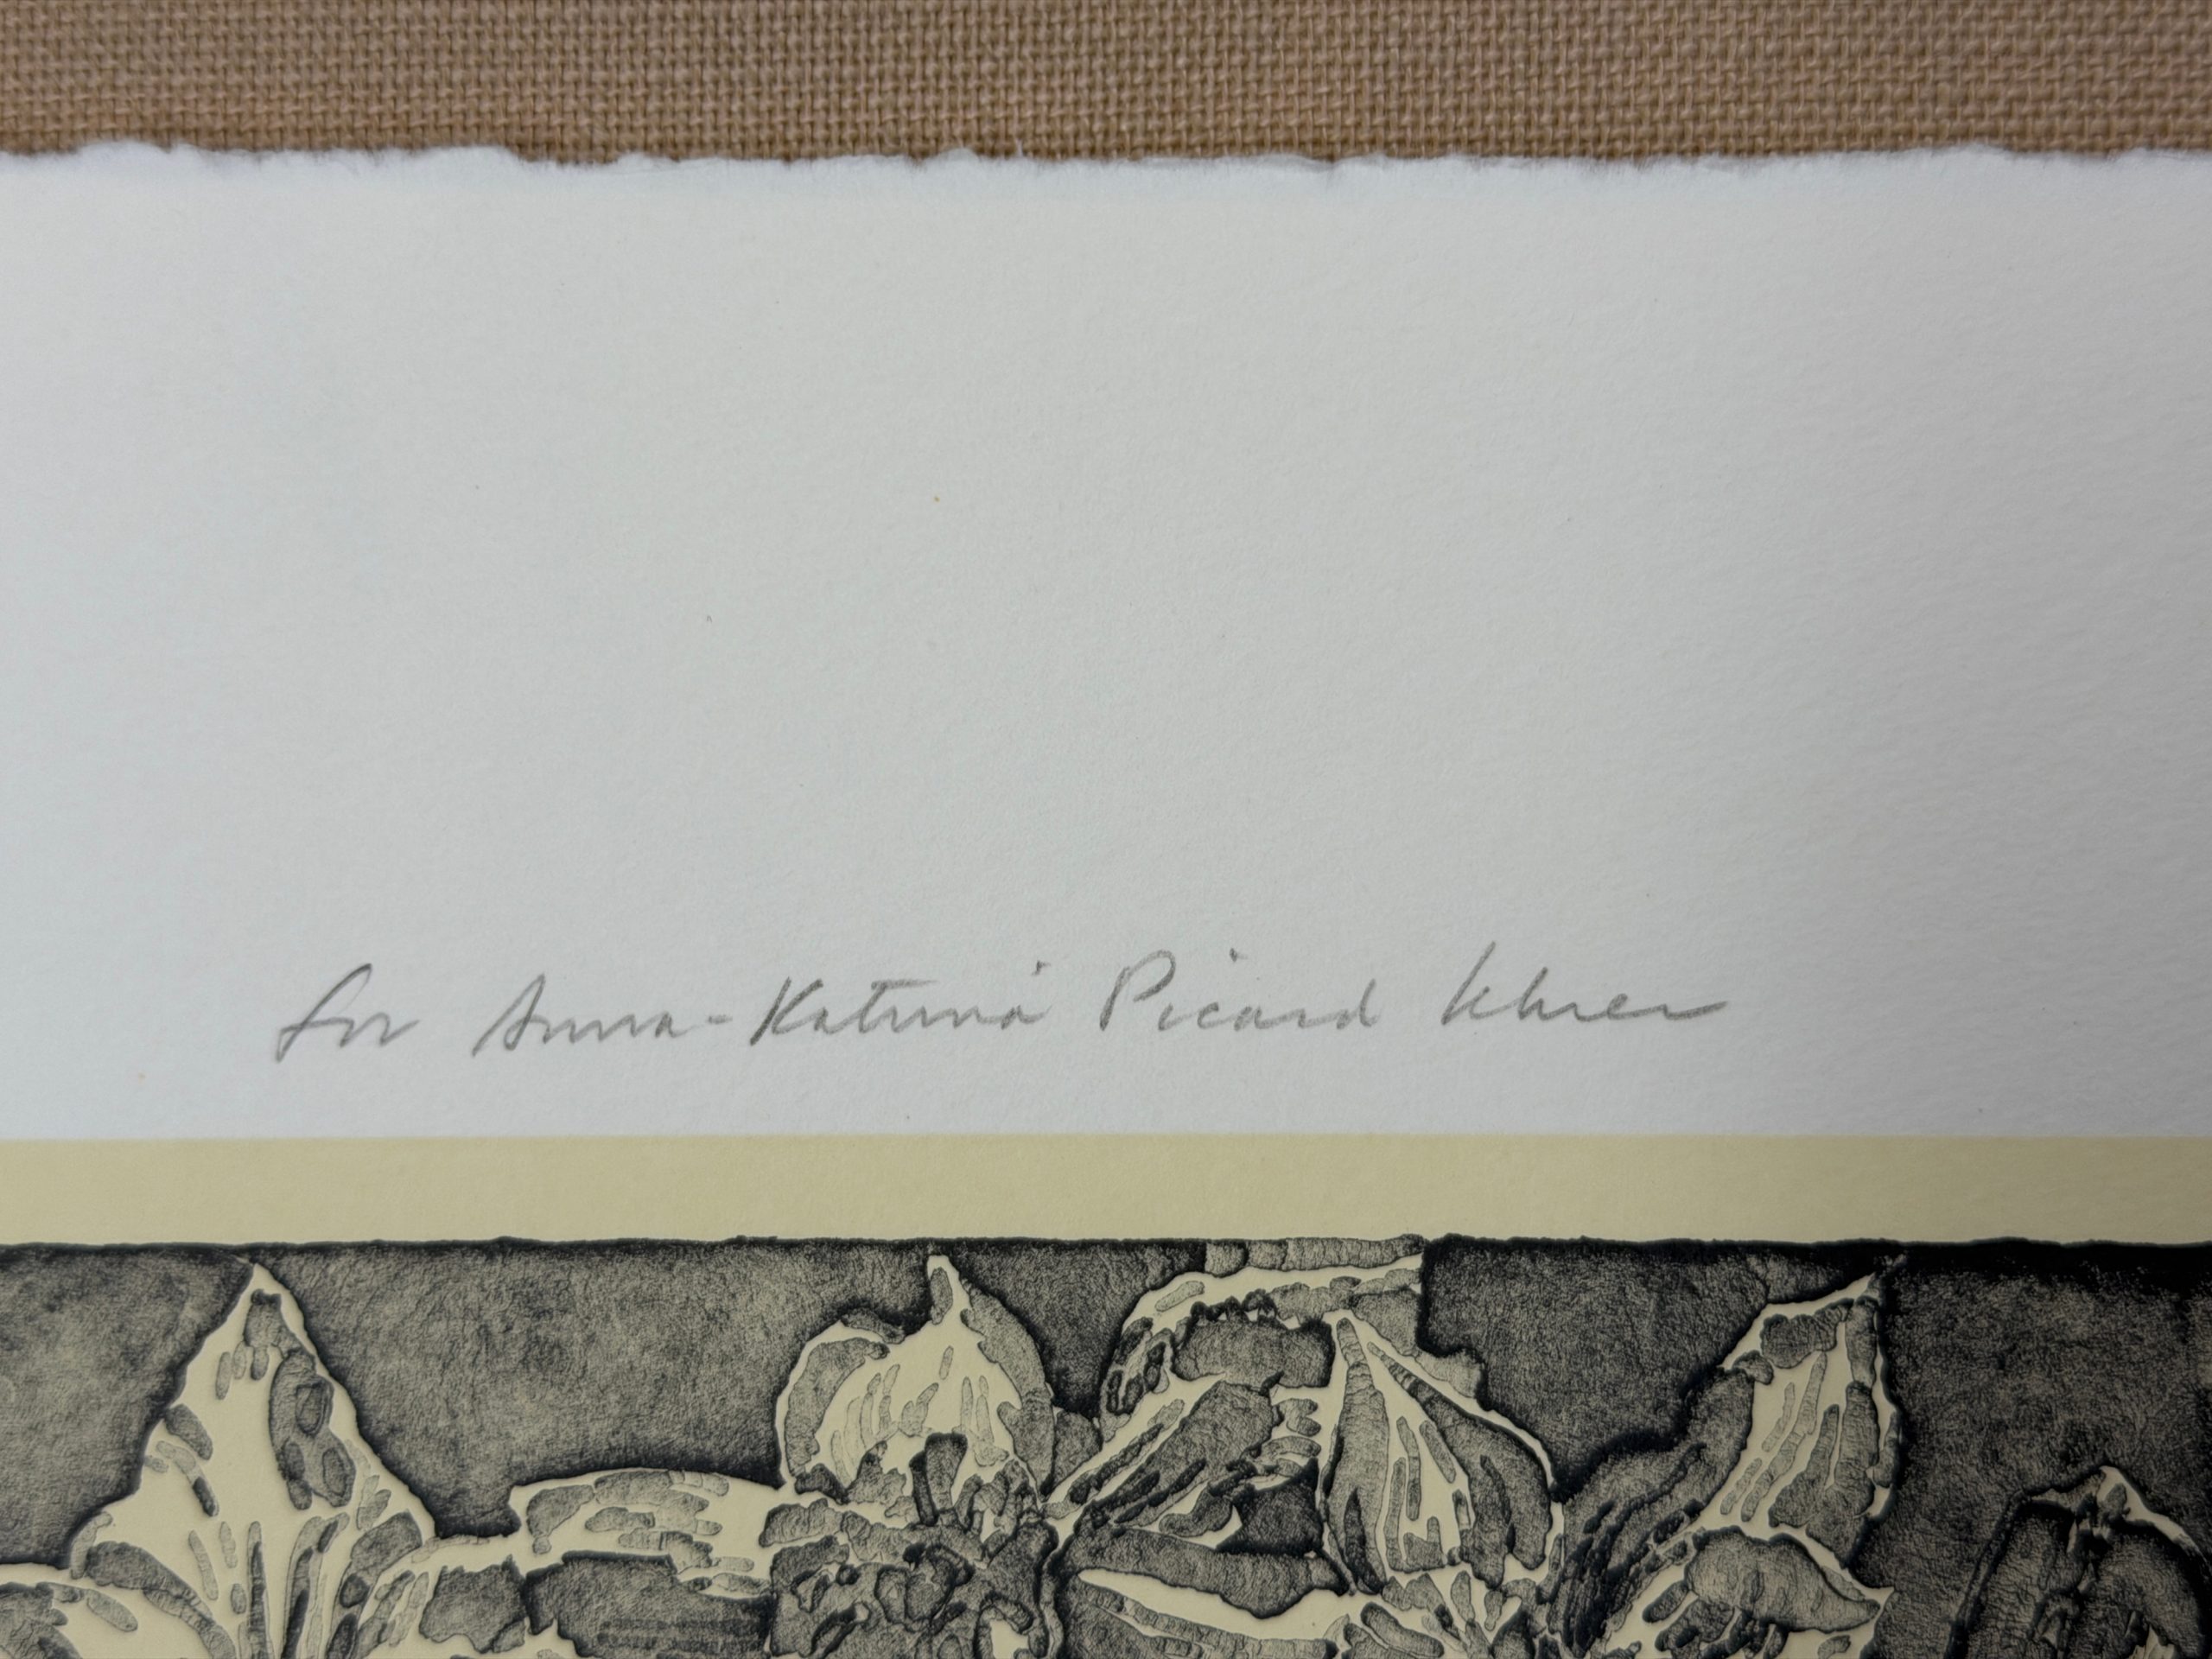 for Anna-Katrina Picard